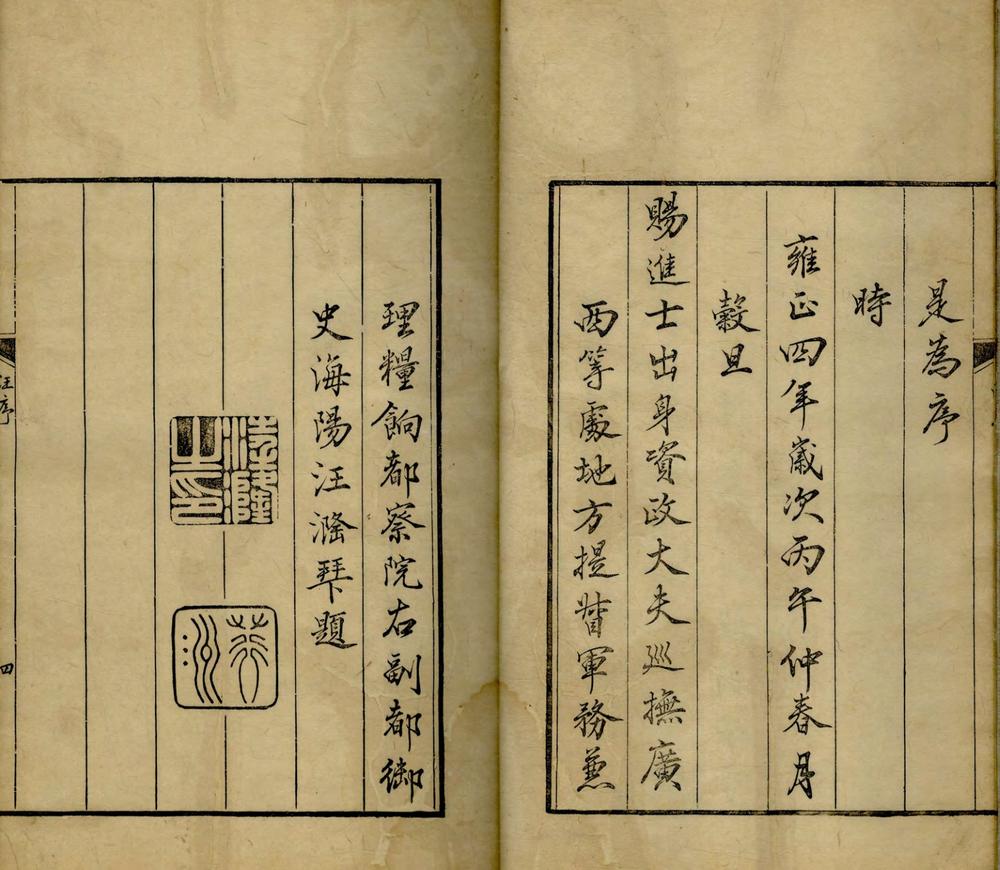 是為序
時
雍正四年歲次丙午仲春月
穀旦
賜進士出身資政大夫巡撫廣
西等處地方提督軍務兼
理糧餉都察院右副都御
史海陽汪漋拜題
漋之印
荇洲
汪序
四